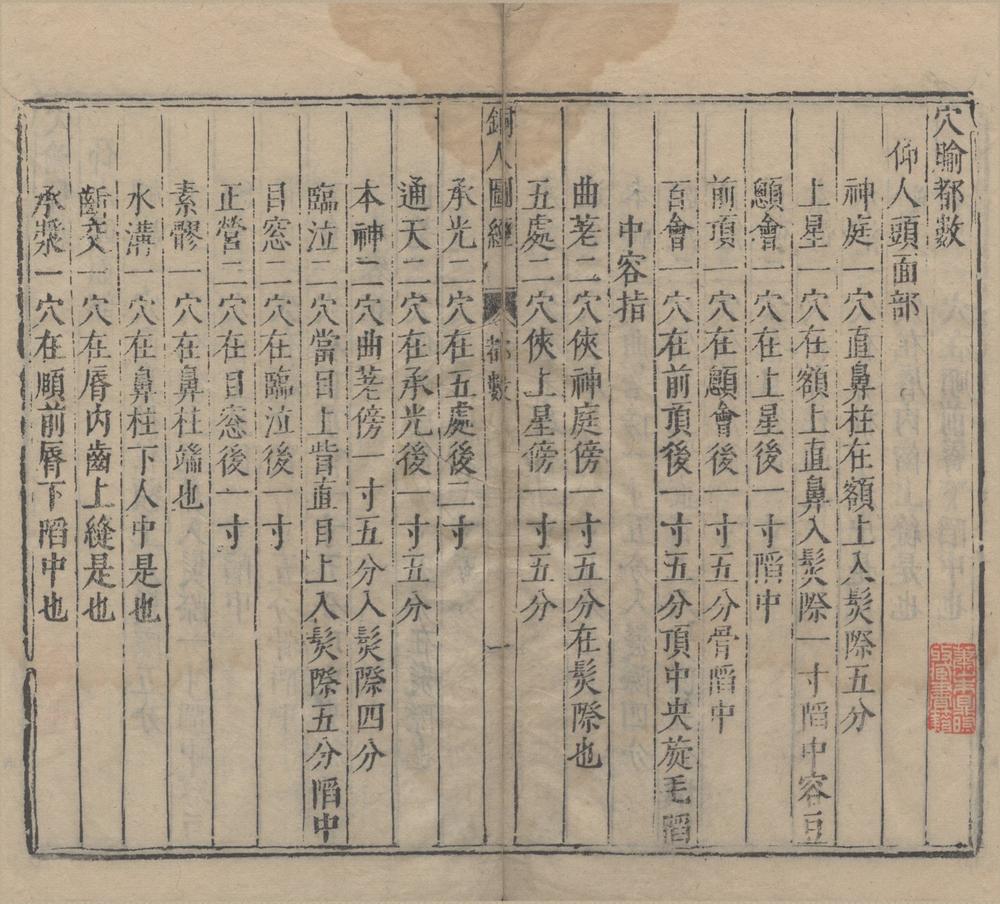 穴腧都數
仰人頭面部
神庭一穴直鼻柱在額上入髮際五分
上星一穴在額上直鼻入髮際一寸䧟中容豆
顖會一穴在上星後一寸䧟中
前頂一穴在顖會後一寸五分骨䧟中
百會一穴在前頂後一寸五分頂中央旋毛䧟
中容指
曲差二穴俠神庭傍一寸五分在髮際也
五處二穴俠上星傍一寸五分
銅人圖經 都數 一
承光二穴在五處後二寸
通天二穴在承光後一寸五分
本神二穴曲差傍一寸五分入髮際四分
臨泣二穴當目上眥直目上入髮際五分䧟中
目窓二穴在臨泣後一寸
正營二穴在目窓後一寸
素髎一穴在鼻柱端也
水溝一穴在鼻柱下人中是也
齗交一穴在脣内齒上縫是也
承漿一穴在順前脣下䧟中也